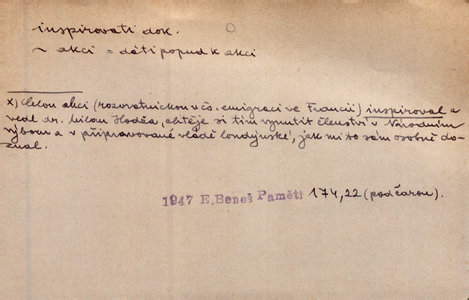 inspirovati dok.
~ akci = dáti popud k akci
x) Celou akci (rozvratnickou v čs. emigraci ve Francii) inspiroval a
vedl dr. Milan Hodža, chtěje si tím vynutit členství v Národním
výboru a v připravované vládě londýnské, jak mi to sám osobně do-
znal.
1947 E. Beneš Paměti 174,22 (pod čarou).